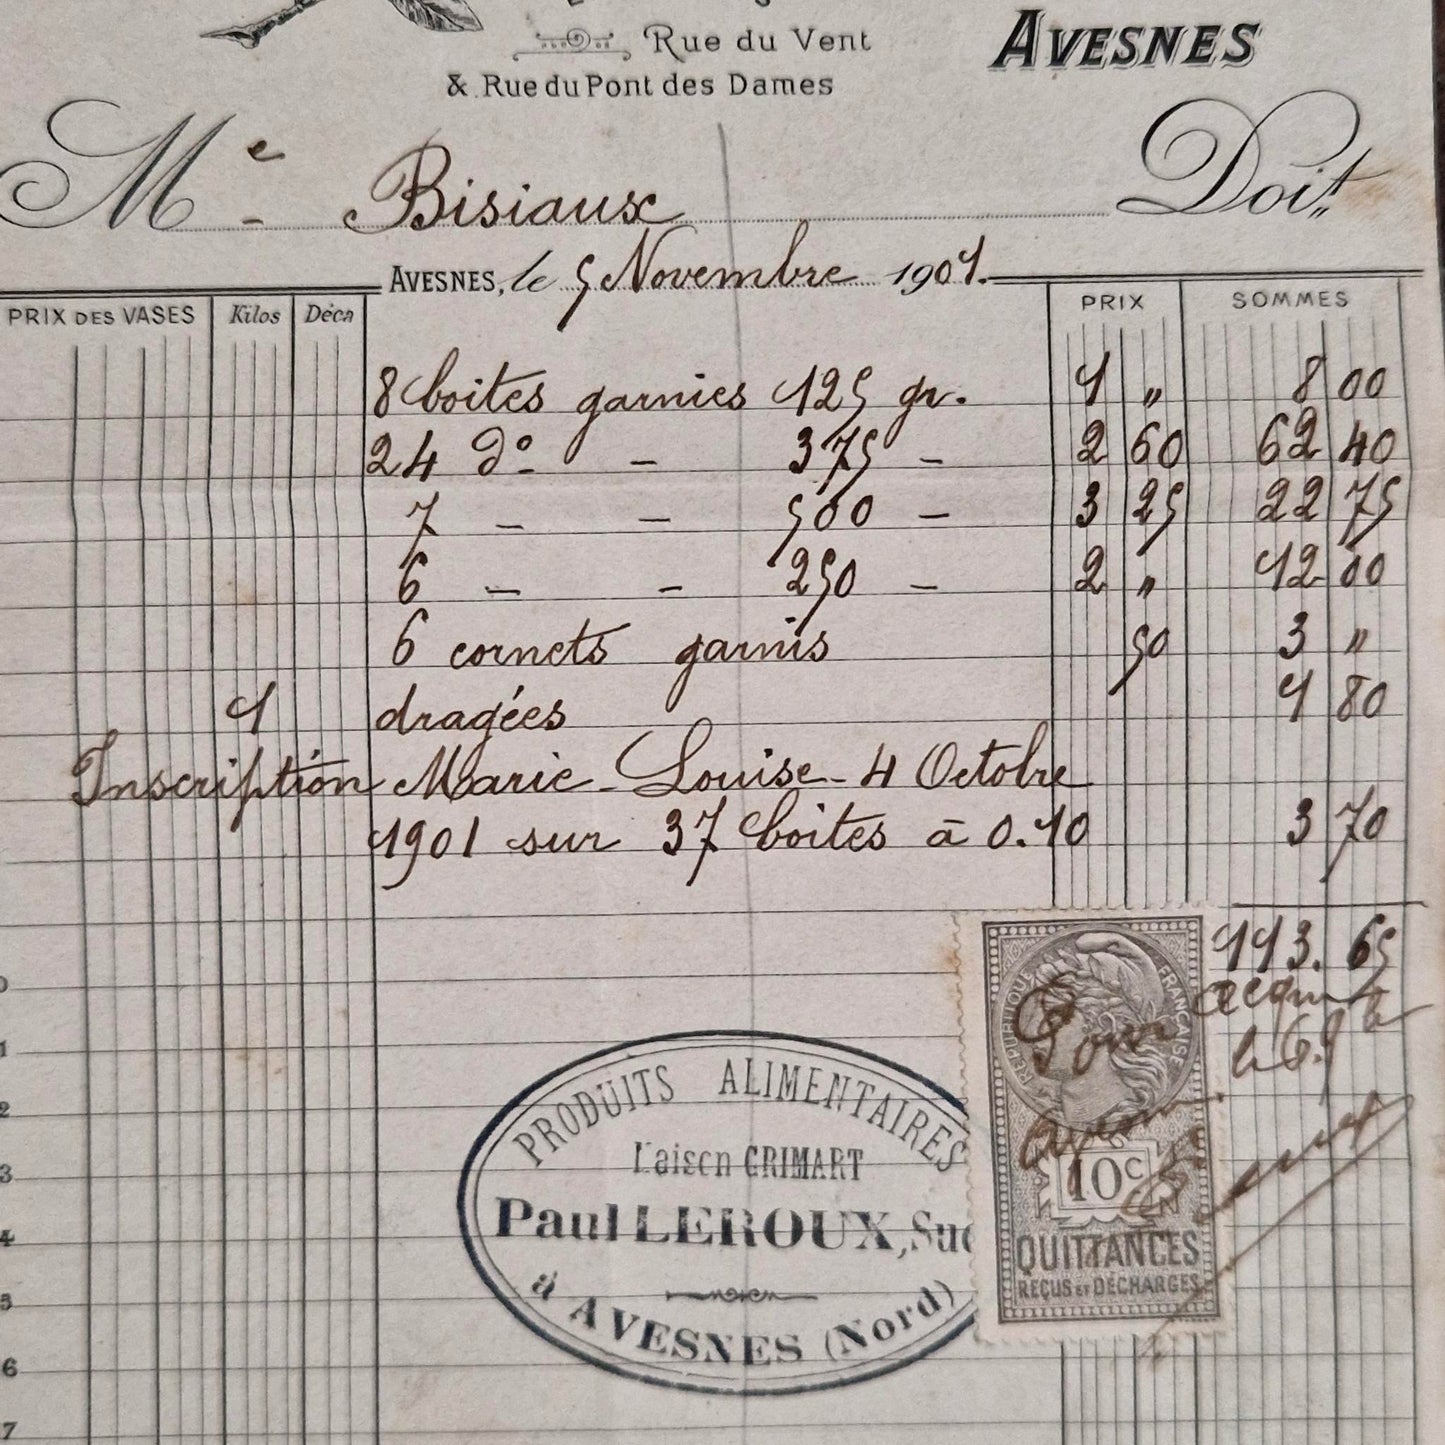 Rue du Vent
AVESNES
& Rue du Pont des Dames
Me Bisiaux Doit
AVESNES, le 5 Novembre 1901.
PRIX DES VASES Kilos Déca PRIX SOMMES
8 boites garnies 125 gr. 1 " 8 00
24 do - 375 - 2 60 62 40
7 - - 500 - 3 25 22 75
6 - - 250 - 2 " 12 00
6 cornets garnis 50 3 "
1 dragées 1 80
Inscription Marie-Louise - 4 Octobre
1901 sur 37 boites à 0.10 3 70
113. 65
Pour acquit
RÉPUBLIQUE FRANÇAISE
10c
QUITTANCES
REÇUS ET DÉCHARGES
PRODUITS ALIMENTAIRES
Maison GRIMART
Paul LEROUX, Suc
à AVESNES (Nord)
0
1
2
3
4
5
6
7